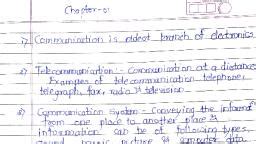 Chapter-01
1) Communication is oldest branch of electronics
2) Telecommunication:- Communication at a distance
Examples of telecommunication telephone,
telegraph, fax, radio & television.
3) Communication System - Conveying the informat
from one place to another place &
information can be of following types.
sound, music, picture & computer data